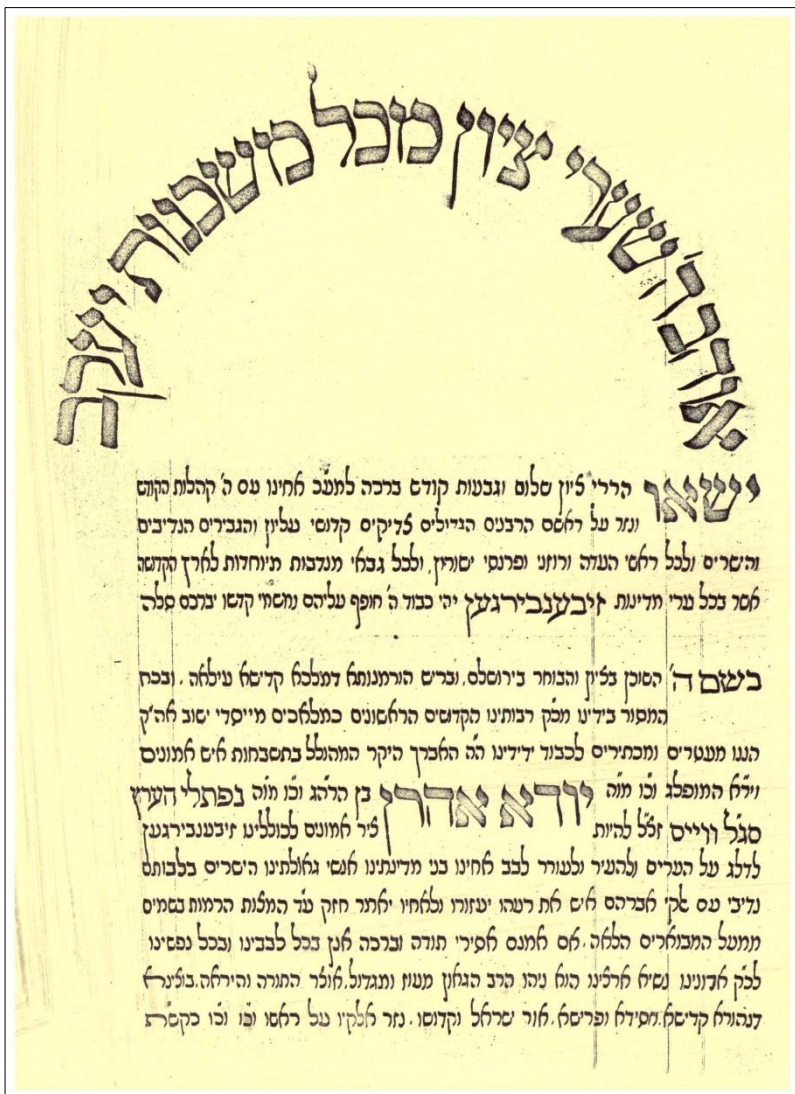 אוהב ה' שערי ציון מכל משכנות יעקב
ישאו הררי ציון שלום וגבעות קודש ברכה למע"כ אחינו עם ה' קהלות הקודש
ונזר על ראשם הרבנים הגדולים צדיקים קדושי עליון והגבירים הנדיבים
והישרים ולכל ראשי העדה ורוזני ופרנסי ישורון, ולכל גבאי מנדבות מיוחדות לארץ הקדושה
אשר בכל ערי מדינות זיבענבירגען יהי כבוד ה' חופף עליהם ומשמי קדשו יברכם סלה
בשם ה' השוכן בציון והבוחר בירושלם, ובריש הורמנותא דמלכא קדישא עילאה, ובכח
המסור בידינו מכ"ק רבותינו הקדושים הראשונים כמלאכים מייסדי ישוב אה"ק
הננו מעטרים ומכתירים לכבוד ידידינו ה"ה האברך היקר המהולל בתשבחות איש אמונים
וי"רא המופלג וכו' מו"ה יודא אהרן בן הרה"ג וכו' מו"ה נפתלי הערץ
סג"ל ווייס זצ"ל להיות ציר אמונים לכוללינו זיבענבירגען
לדלג על הערים ולהעיר ולעורר לבב אחינו בני מדינתינו אנשי גאולתינו הישרים בלבותם
נדיבי עם אלקי אברהם איש את רעהו יעזורו ולאחיו יאמר חזק עד המצות הרמות בשמים
ממעל המבוארים הלאה, אם אמנם אסירי תודה וברכה אנן בכל לבבינו ובכל נפשינו
לכ"ק אדונינו נשיא ארצינו הוא ניהו הרב הגאון מעוז ומגדול, אוצר התורה והיראה, בוצינא
דנהורא קדישא, חסידא ופרישא, אור ישראל וקדושו, נזר אלקיו על ראשו וכו' וכו' וכו' כקש"ת